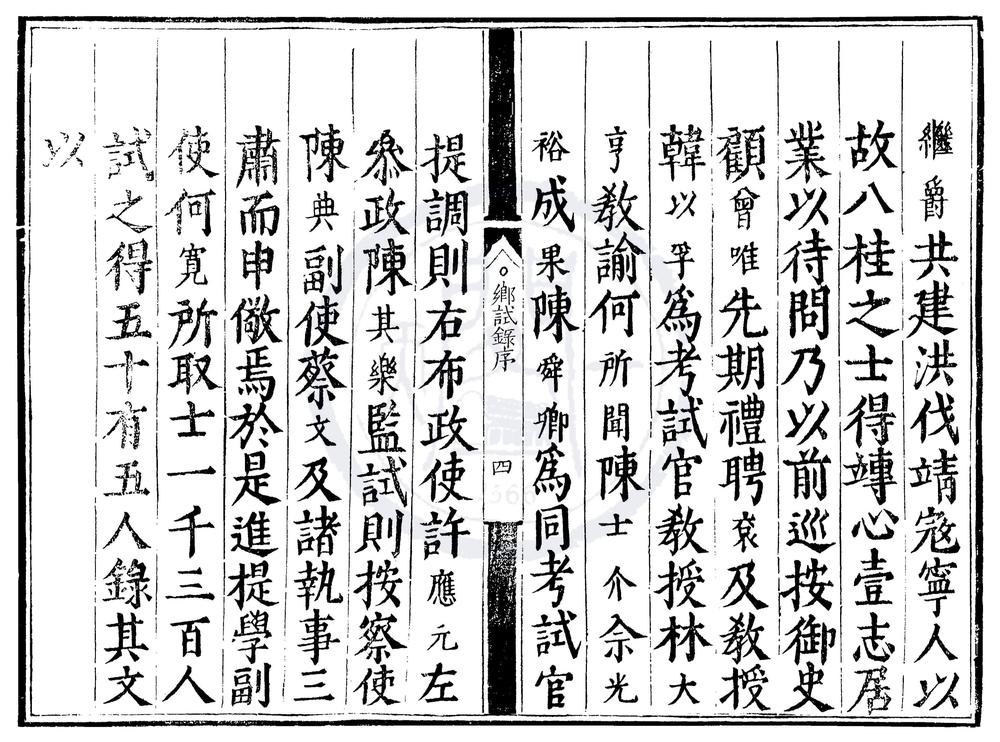 繼爵共建洪伐靖寇寧人以
故八桂之士得竱心壹志居
業以待問乃以前巡按御史
顧曾唯先期禮聘衮及教授
韓以孚爲考試官教授林大
亨教諭何所聞陳士介佘光
裕成果陳舜卿爲同考試官
鄉試錄序
四
提調則右布政使許應元左
叅政陳其樂監試則按察使
陳典副使蔡文及諸執事三
肅而申儆焉於是進提學副
使何寬所取士一千三百人
試之得五十有五人錄其文
以